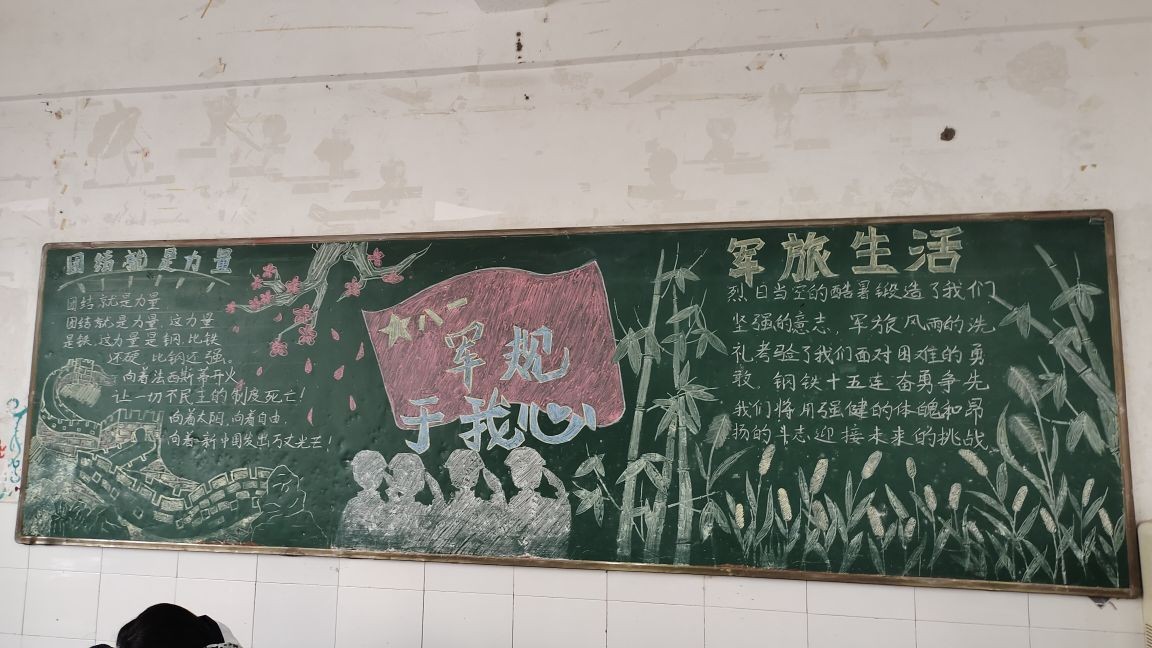 团结就是力量
团结就是力量
团结就是力量,这力量
是铁,这力量是钢,比铁
还硬,比钢还强。
向着法西斯蒂开火
让一切不民主的制度死亡!
向着太阳,向着自由,
向着新中国发出万丈光芒!
八一
军规
于我心
军旅生活
烈日当空的酷暑锻造了我们
坚强的意志,军旅风雨的洗
礼考验了我们面对困难的勇
敢,钢铁十五连奋勇争先
我们将用强健的体魄和昂
扬的斗志迎接未来的挑战。